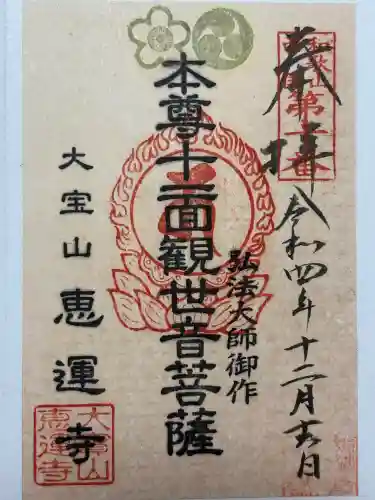 奉拝
令和四年十二月吉日
弘法大師御作
本尊十一面観世音菩薩
大宝山
恵運寺
大宝山
恵運寺